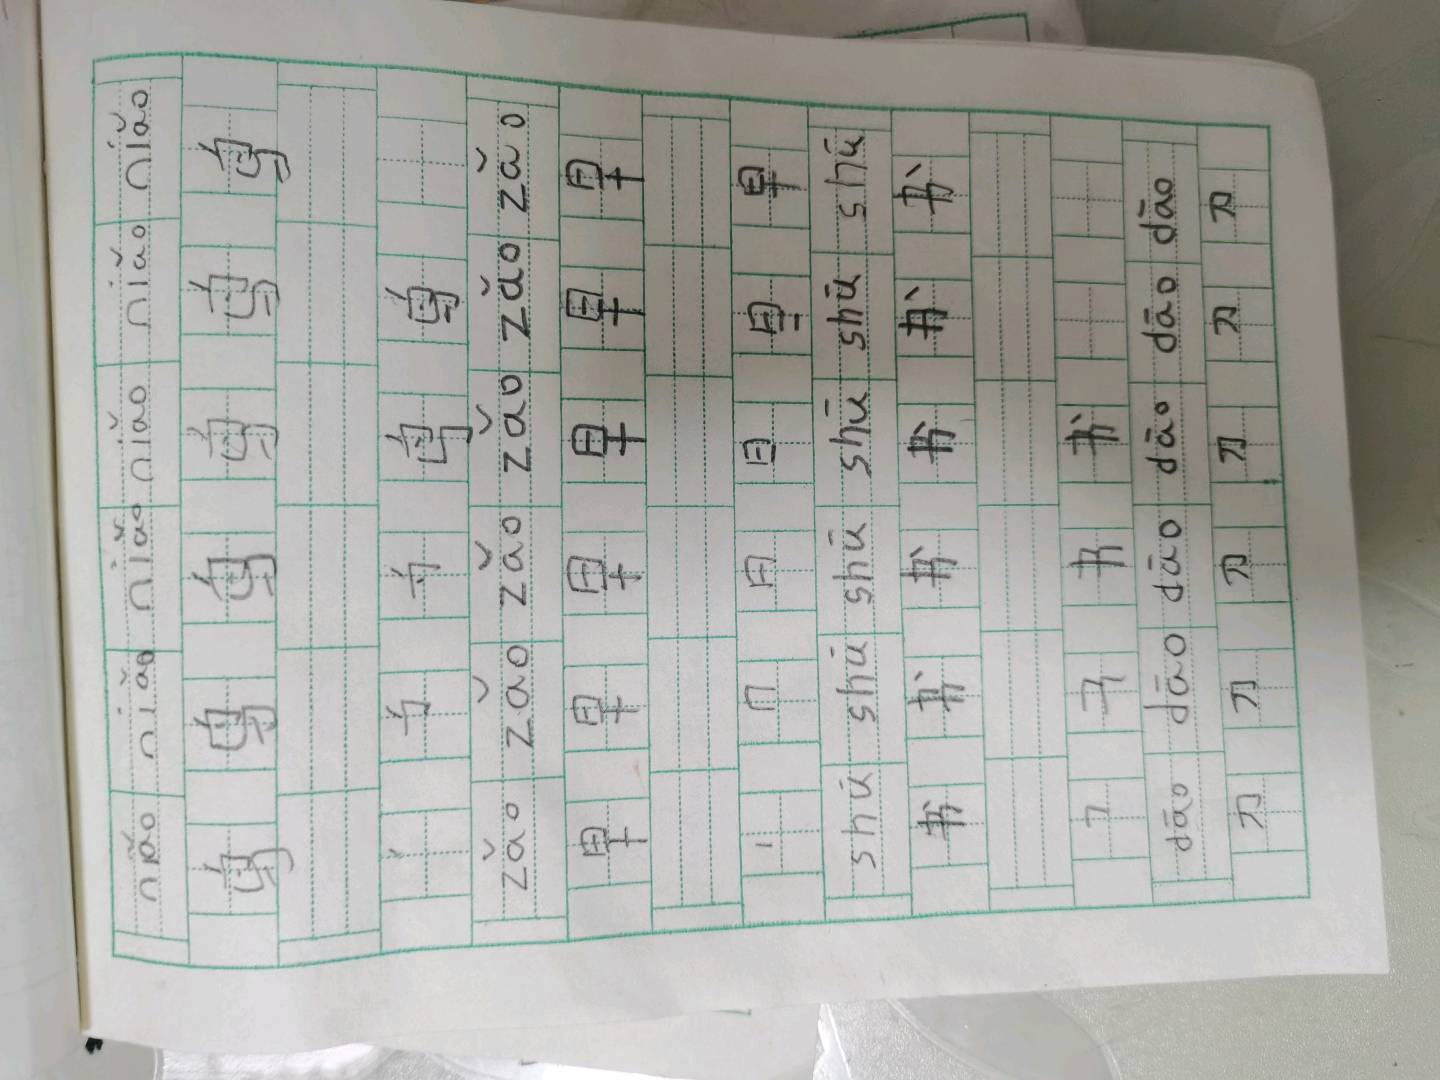 niǎo niǎo niǎo niǎo niǎo niǎo
鸟 鸟 鸟 鸟 鸟 鸟
鸟 鸟
zǎo zǎo zǎo zǎo zǎo zǎo
早 早 早 早 早 早
丨 冂 日 旦 早
shū shū shū shū shū shū
书 书 书 书 书 书
书
dāo dāo dāo dāo dāo dāo
刀 刀 刀 刀 刀 刀